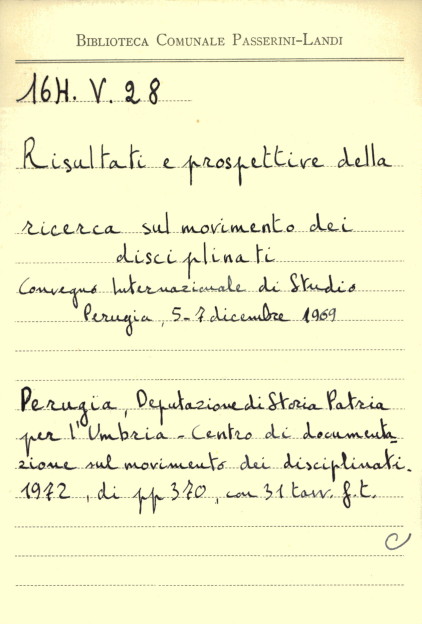 BIBLIOTECA COMUNALE PASSERINI-LANDI
16H. V. 28
Risultati e prospettive della
ricerca sul movimento dei
disciplinati
Convegno Internazionale di Studio
Perugia, 5-7 dicembre 1969
Perugia, Deputazione di Storia Patria
per l'Umbria - Centro di documenta
zione sul movimento dei disciplinati.
1972, di pp 370, con 31 tavv. f.t.